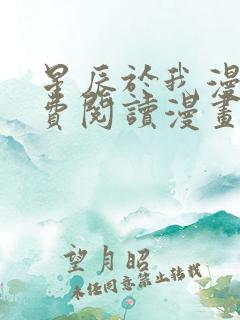 星辰於我漫
費閱讀漫畫
望月昭
未经同意禁止转载